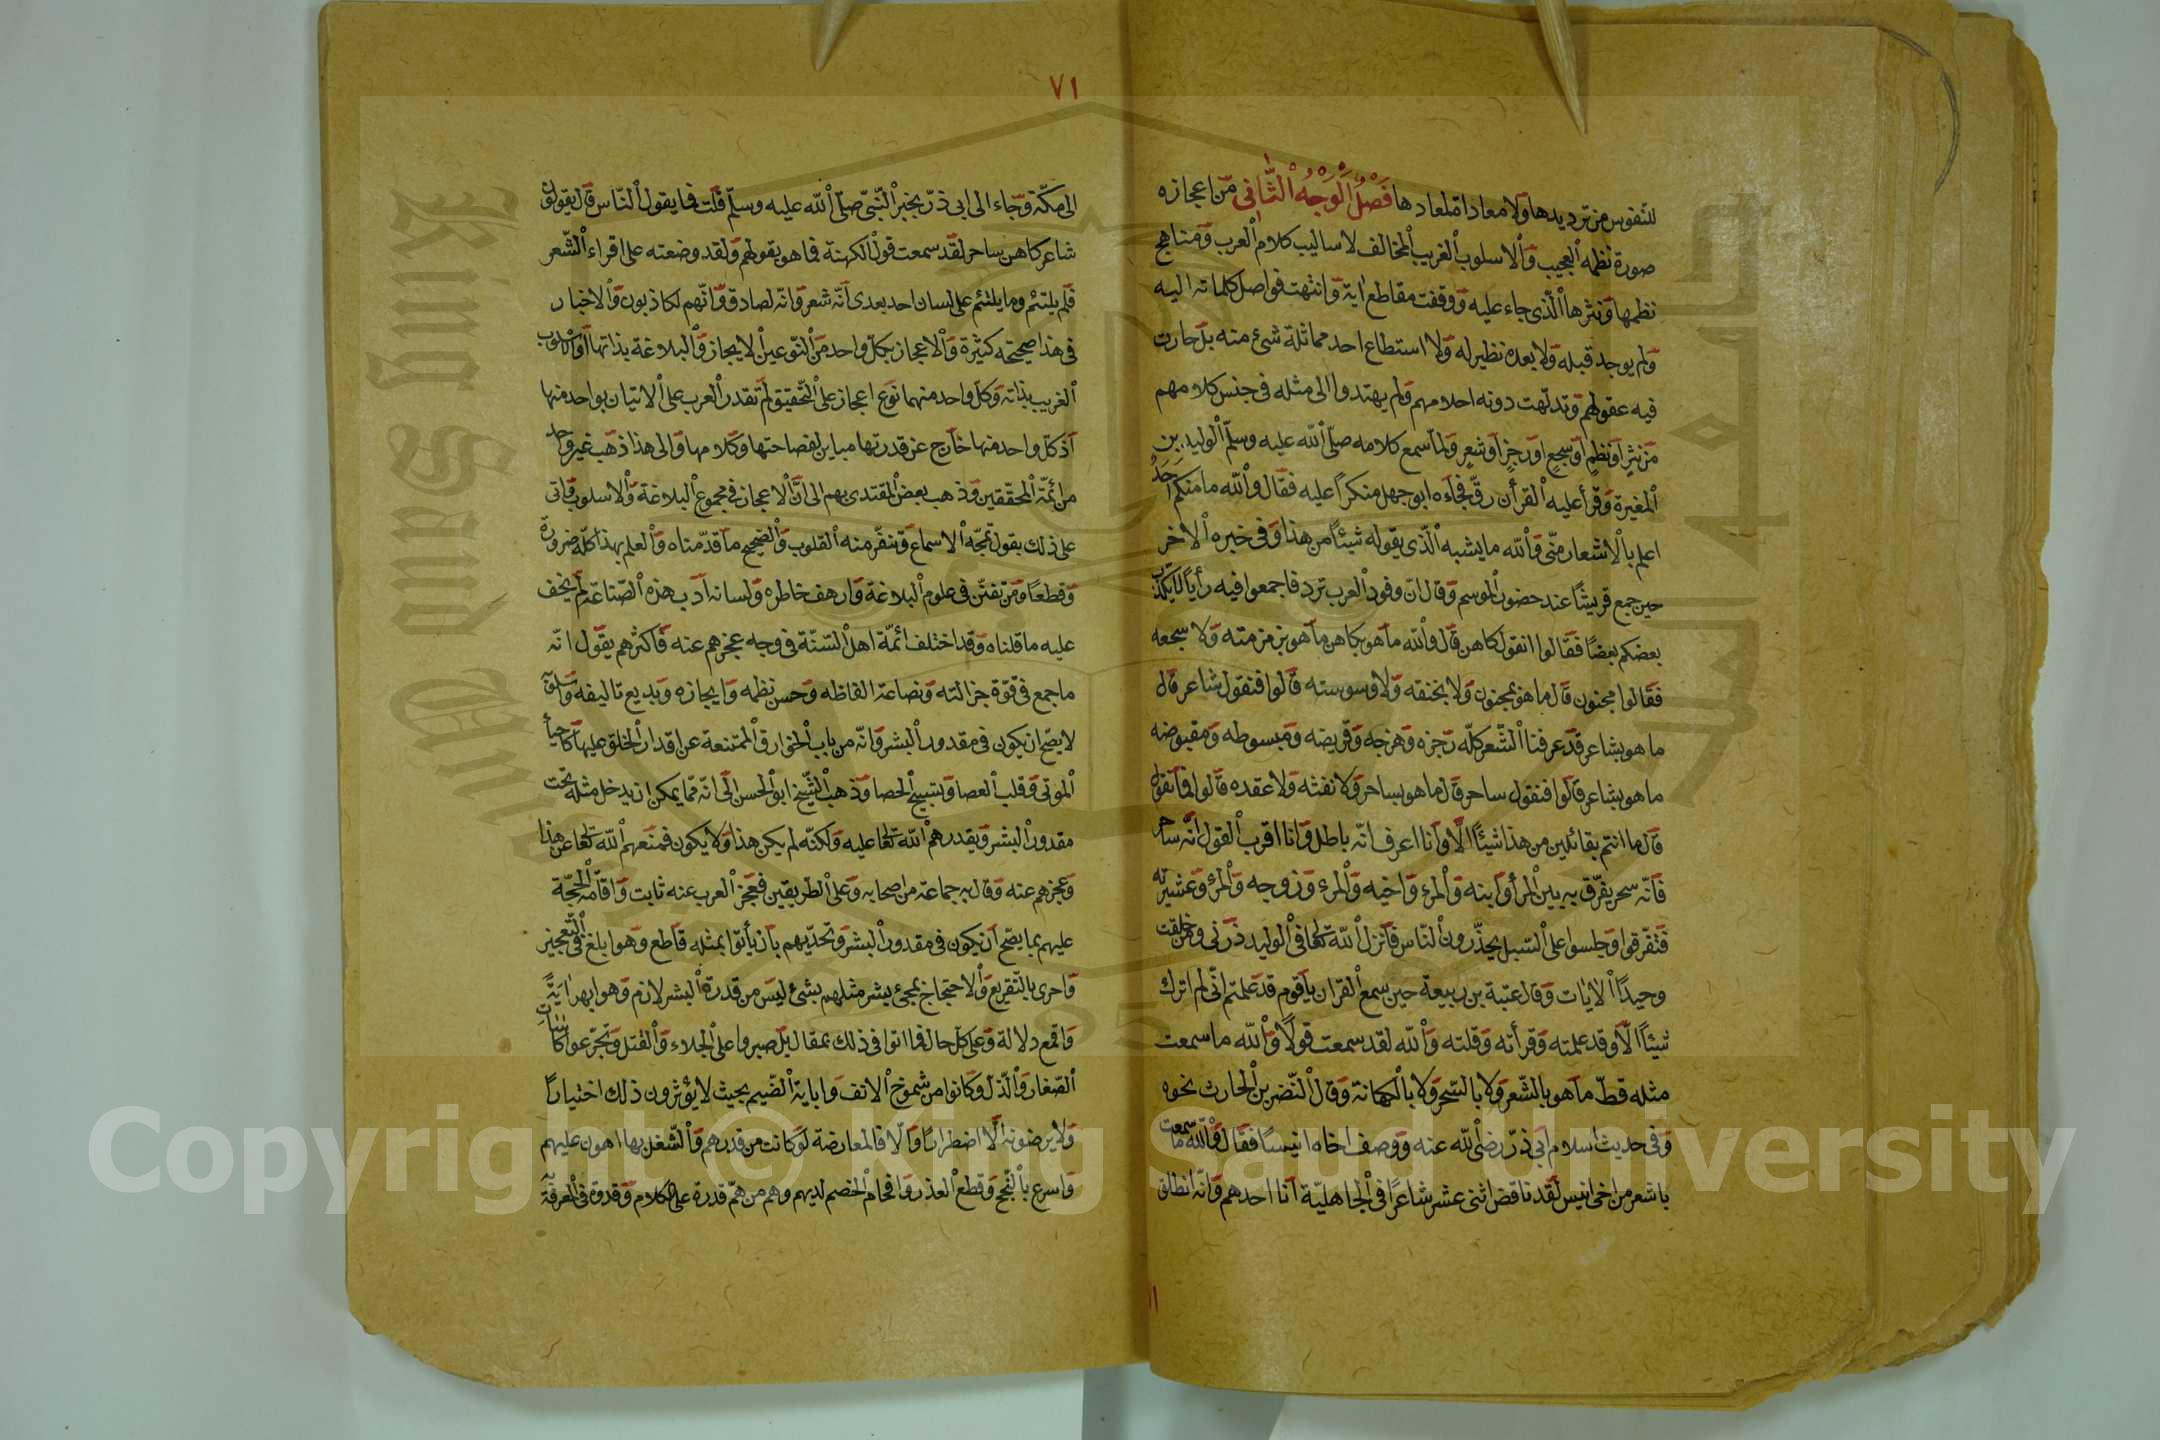 للنفوس من ترديدها ولا معاداة لمعادها فَصْلٌ اَلْوَجْهُ الثَّانِي من اعجازه
صورة نظمه العجيب والاسلوب الغريب المخالف لاساليب كلام العرب ومناهج
نظمها ونثرها الذى جاء عليه ووقفت مقاطع ايه وانتهت فواصل كلماته اليه
ولم يوجد قبله ولا بعده نظير له ولا استطاع احد مماثلة شئ منه بل حارت
فيه عقولهم وتدلهت دونه احلامهم ولم يهتدوا الى مثله فى جنس كلامهم
من نثر او نظم او سجع او رجز او شعر ولما سمع كلامه صلى الله عليه وسلم الوليد بن
المغيرة وقرأ عليه القرأن رقّ فجاءه ابو جهل منكراً عليه فقال والله ما منكم احد
اعلم بالاشعار منّى والله ما يشبه الذى يقوله شيئاً من هذا وفى خبره الاخر
حين جمع قريشاً عند حضور الموسم وقال انّ وفود العرب ترد فاجمعوا فيه رأياً لا يكذّب
بعضكم بعضًا فقالوا انقول كاهن قال والله ما هو بكاهن ما هو بزمزمته ولا سجعه
فقالوا مجنون قال ما هو بمجنون ولا بخنقه ولا وسوسته قالوا فنقول شاعر قال
ما هو بشاعر قد عرفنا الشعر كلّه رجزه وهزجه وقريضه ومبسوطه ومقبوضه
ما هو بشاعر قالوا فنقول ساحر قال ما هو بساحر ولا نفثه ولا عقده قالوا فما نقول
قال ما انتم بقائلين من هذا شيئاً الّا وانا اعرف انّه باطل وانا اقرب القول انّه ساحر
فانّه سحر يفرّق به بين المرأ وابنه والمرء واخيه والمرء وزوجه والمرؤ وعشيرته
فتفرقوا وجلسوا على السبل يحذّرون الناس فانزل الله تعالى فى الوليد ذرنى ومن خلقت
وحيدًا الايات وقال عتبة بن ربيعة حين سمع القران ياقوم قد علمتم انّى لم اترك
شيئاً الّا وقد علمته وقرأته وقلته والله لقد سمعت قولًا والله ما سمعت
مثله قطّ ما هو بالشعر ولا بالسحر ولا بالكهانة وقال النضر بن الحارث نحوه
وفى حديث اسلام ابى ذرّ رضى الله عنه ووصف اخاه انيسًا فقال والله ما سمعت
باشعر من اخى انيس لقد ناقض اثنى عشر شاعرًا فى الجاهلية انا احدهم وانّه انطلق
٧١
الى مكّة وجاء الى ابى ذرّ بخبر النّبى صلى الله عليه وسلم قلت فما يقول الناس قال يقولون
شاعر كاهن ساحر لقد سمعت قول الكهنة فما هو بقولهم ولقد وضعته على اقراء الشعر
فلم يلتئم وما يلتئم على لسان احد بعدى انّه شعر وانّه لصادق وانّهم لكاذبون والاخبار
فى هذا صحيحة كثيرة والاعجاز بكلّ واحد من النوعين الايجاز والبلاغة بذاتها اوالاسلوب
الغريب بذاته وكلّ واحد منهما نوع اعجاز على التحقيق لم تقدر العرب على الاتيان بواحد منها
اذ كلّ واحد منها خارج عن قدرتها مباين لفصاحتها وكلامها والى هذا ذهب غير واحد
من ائمّة المحقّقين وذهب بعض المقتدى بهم الى انّ الاعجاز فى مجموع البلاغة والاسلوب واتى
على ذلك بقول تمجّه الاسماع وتنفّر منه القلوب والصحيح ما قدّمناه والعلم بهذا كلّه ضرورة
وقطعًا ومن تفنّن فى علوم البلاغة وارهف خاطره ولسانه ادب هذه الصناعة لم يخف
عليه ما قلناه وقد اختلف ائمّة اهل السنّة فى وجه عجزهم عنه فاكثرهم يقول انّه
ما جمع فى قوّة جزالته ونصاعة الفاظه وحسن نظمه وايجازه وبديع تاليفه واسلوبه
لا يصحّ ان يكون فى مقدور البشر وانّه من باب الخوارق الممتنعة عن اقدار الخلق عليها كاحياء
الموتى وقلب العصا وتسبيح الحصا وذهب الشيخ ابو الحسن الى انّه ممّا يمكن ان يدخل مثله تحت
مقدور البشر ويقدرهم الله تعالى عليه ولكنّه لم يكن هذا ولا يكون فمنعهم الله تعالى عن هذا
وعجزهم عنه وقال به جماعة من اصحابه وعلى الطريقين فعجز العرب عنه ثابت واقامة الحجّة
عليهم بما يصحّ ان يكون فى مقدور البشر وتحدّيهم بان يأتوا بمثله قاطع وهو ابلغ فى التعجيز
واحرى بالتقريع والاحتجاج بمجئ بشر مثلهم بشئ ليس من قدرة البشر لازم وهو ابهر اية
واقمع دلالة وعلى كلّ حال فما اتوا فى ذلك بمقال بل صبروا على الجلاء والقتل وتجرّعوا كاسات
الصغار والذلّ وكانوا من شموخ الانف واباية الضيم بحيث لا يؤثرون ذلك اختيارًا
ولا يرضونه الّا اضطرارًا والّا فالمعارضة لو كانت من قدرهم والشغل بها اهون عليهم
واسرع بالنجح وقطع العذر وافحام الخصم لديهم وهم من هم قدرة على الكلام وقدوة فى المعرفة
Copyright © King Saud University